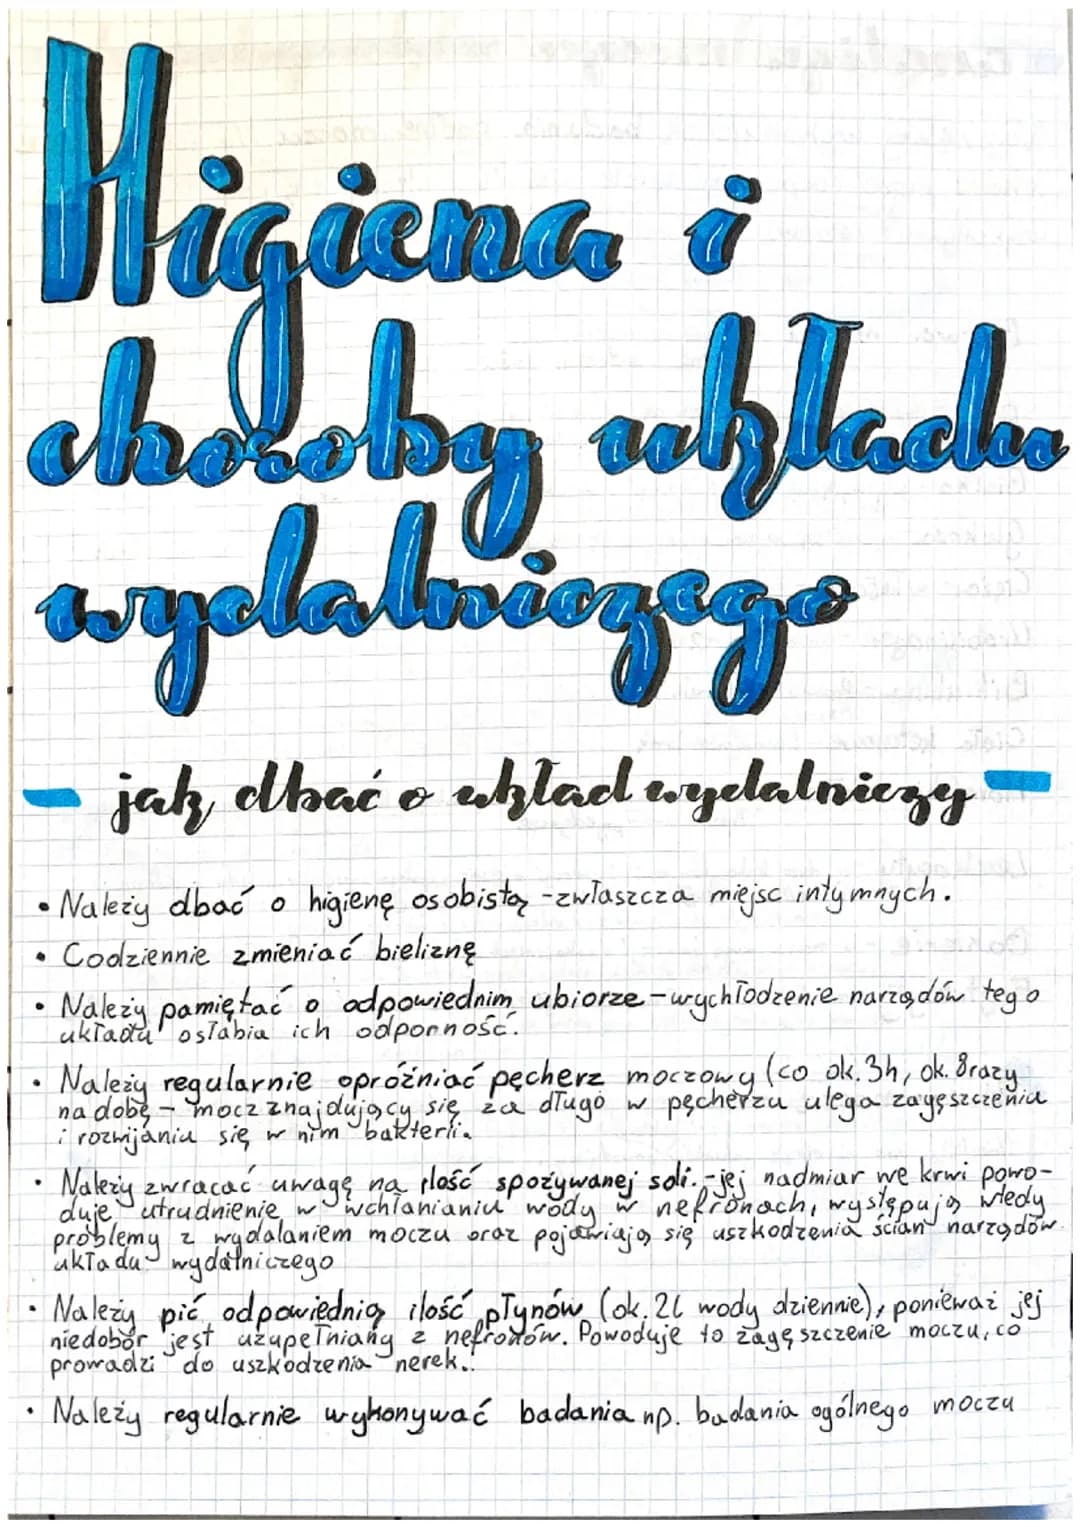 Higiena i
choroby układu
wydalniczego
- jak dbać o układ wydalniczy -
• Należy dbać o higienę osobistą - zwłaszcza miejsc intymnych.
• Codziennie zmieniać bieliznę
• Należy pamiętać o odpowiednim ubiorze - wychłodzenie narządów tego
układu osłabia ich odporność.
• Należy regularnie opróżniać pęcherz moczowy (co ok. 3h, ok. 8 razy
na dobę - mocz znajdujący się za długo w pęcherzu ulega zagęszczeniu
i rozwijaniu się w nim bakterii.
• Należy zwracać uwagę na ilość spożywanej soli. - jej nadmiar we krwi powo-
duje utrudnienie w wchłanianiu wody w nefronach, występują wtedy
problemy z wydalaniem moczu oraz pojawiają się uszkodzenia ścian narządów
układu wydalniczego
• Należy pić odpowiednią ilość płynów (ok. 2l wody dziennie), ponieważ jej
niedobór jest uzupełniany z nefronów. Powoduje to zagęszczenie moczu, co
prowadzi do uszkodzenia nerek..
• Należy regularnie wykonywać badania np. badania ogólnego moczu